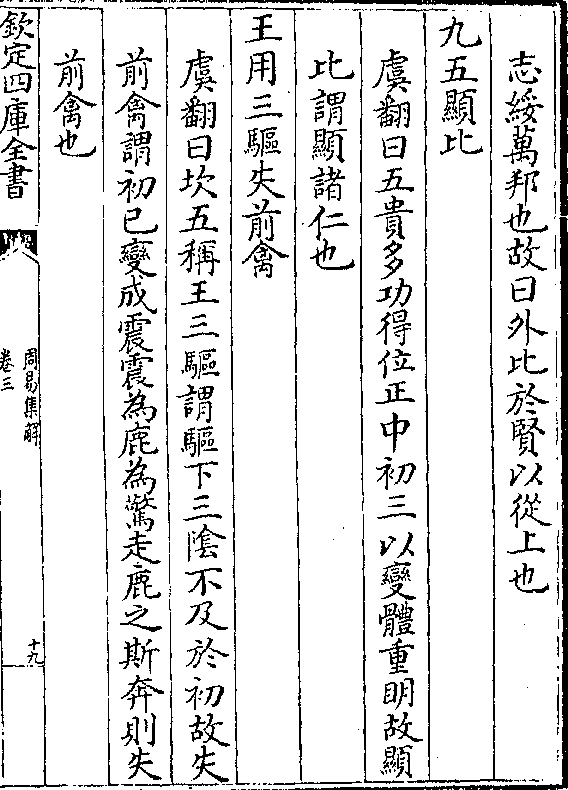 志綏萬邦也故曰外比於賢以從上也
九五顯比
虞翻曰五貴多功得位正中初三以變體重明故顯
比謂顯諸仁也
王用三驅失前禽
虞翻曰坎五稱王三驅謂驅下三隂不及於初故失
前禽謂初已變成震震為鹿為驚走鹿之斯奔則失
前禽也
欽定四庫全書
周易集解
卷三
十九